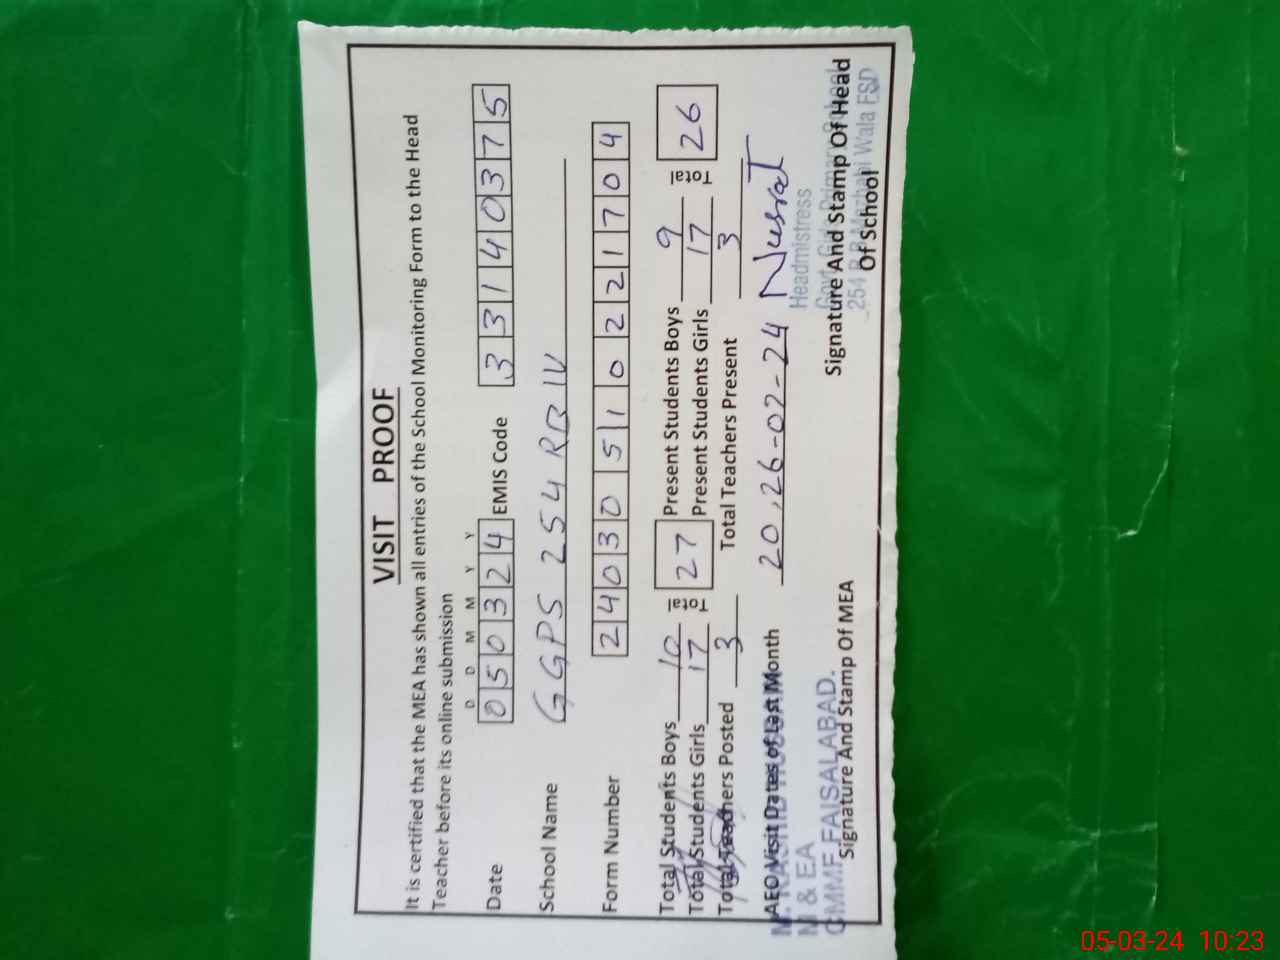 VISIT PROOF
It is certified that the MEA has shown all entries of the School Monitoring Form to the Head
Teacher before its online submission
D D M M Y Y
Date 050324 EMIS Code 33140375
School Name GGPS 254 RB IV
Form Number 24030510221704
Total Students Boys 10 Total 27 Present Students Boys 9 Total 26
Total Students Girls 17 Present Students Girls 17
Total Teachers Posted 3 Total Teachers Present 3
AEO Visit Dates of Last Month 20,26-02-24 Nusrat
M & EA
CMMF FAISALABAD.
Signature And Stamp Of MEA
Headmistress
Govt. Girls Primary School
254 R.B Mezhabi Wala FSD
Signature And Stamp Of Head
Of School
05-03-24 10:23